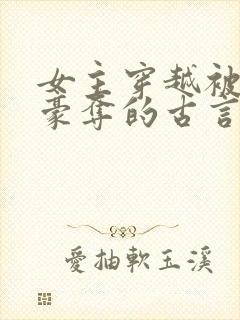 女主穿越被
豪夺的古言
愛抽軟玉溪